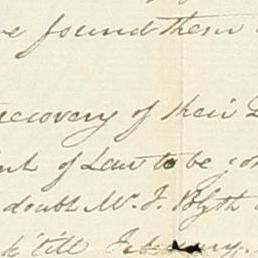 found them
recovery of their
of Law to be
doubt Mr. J. Blyth
'till February.